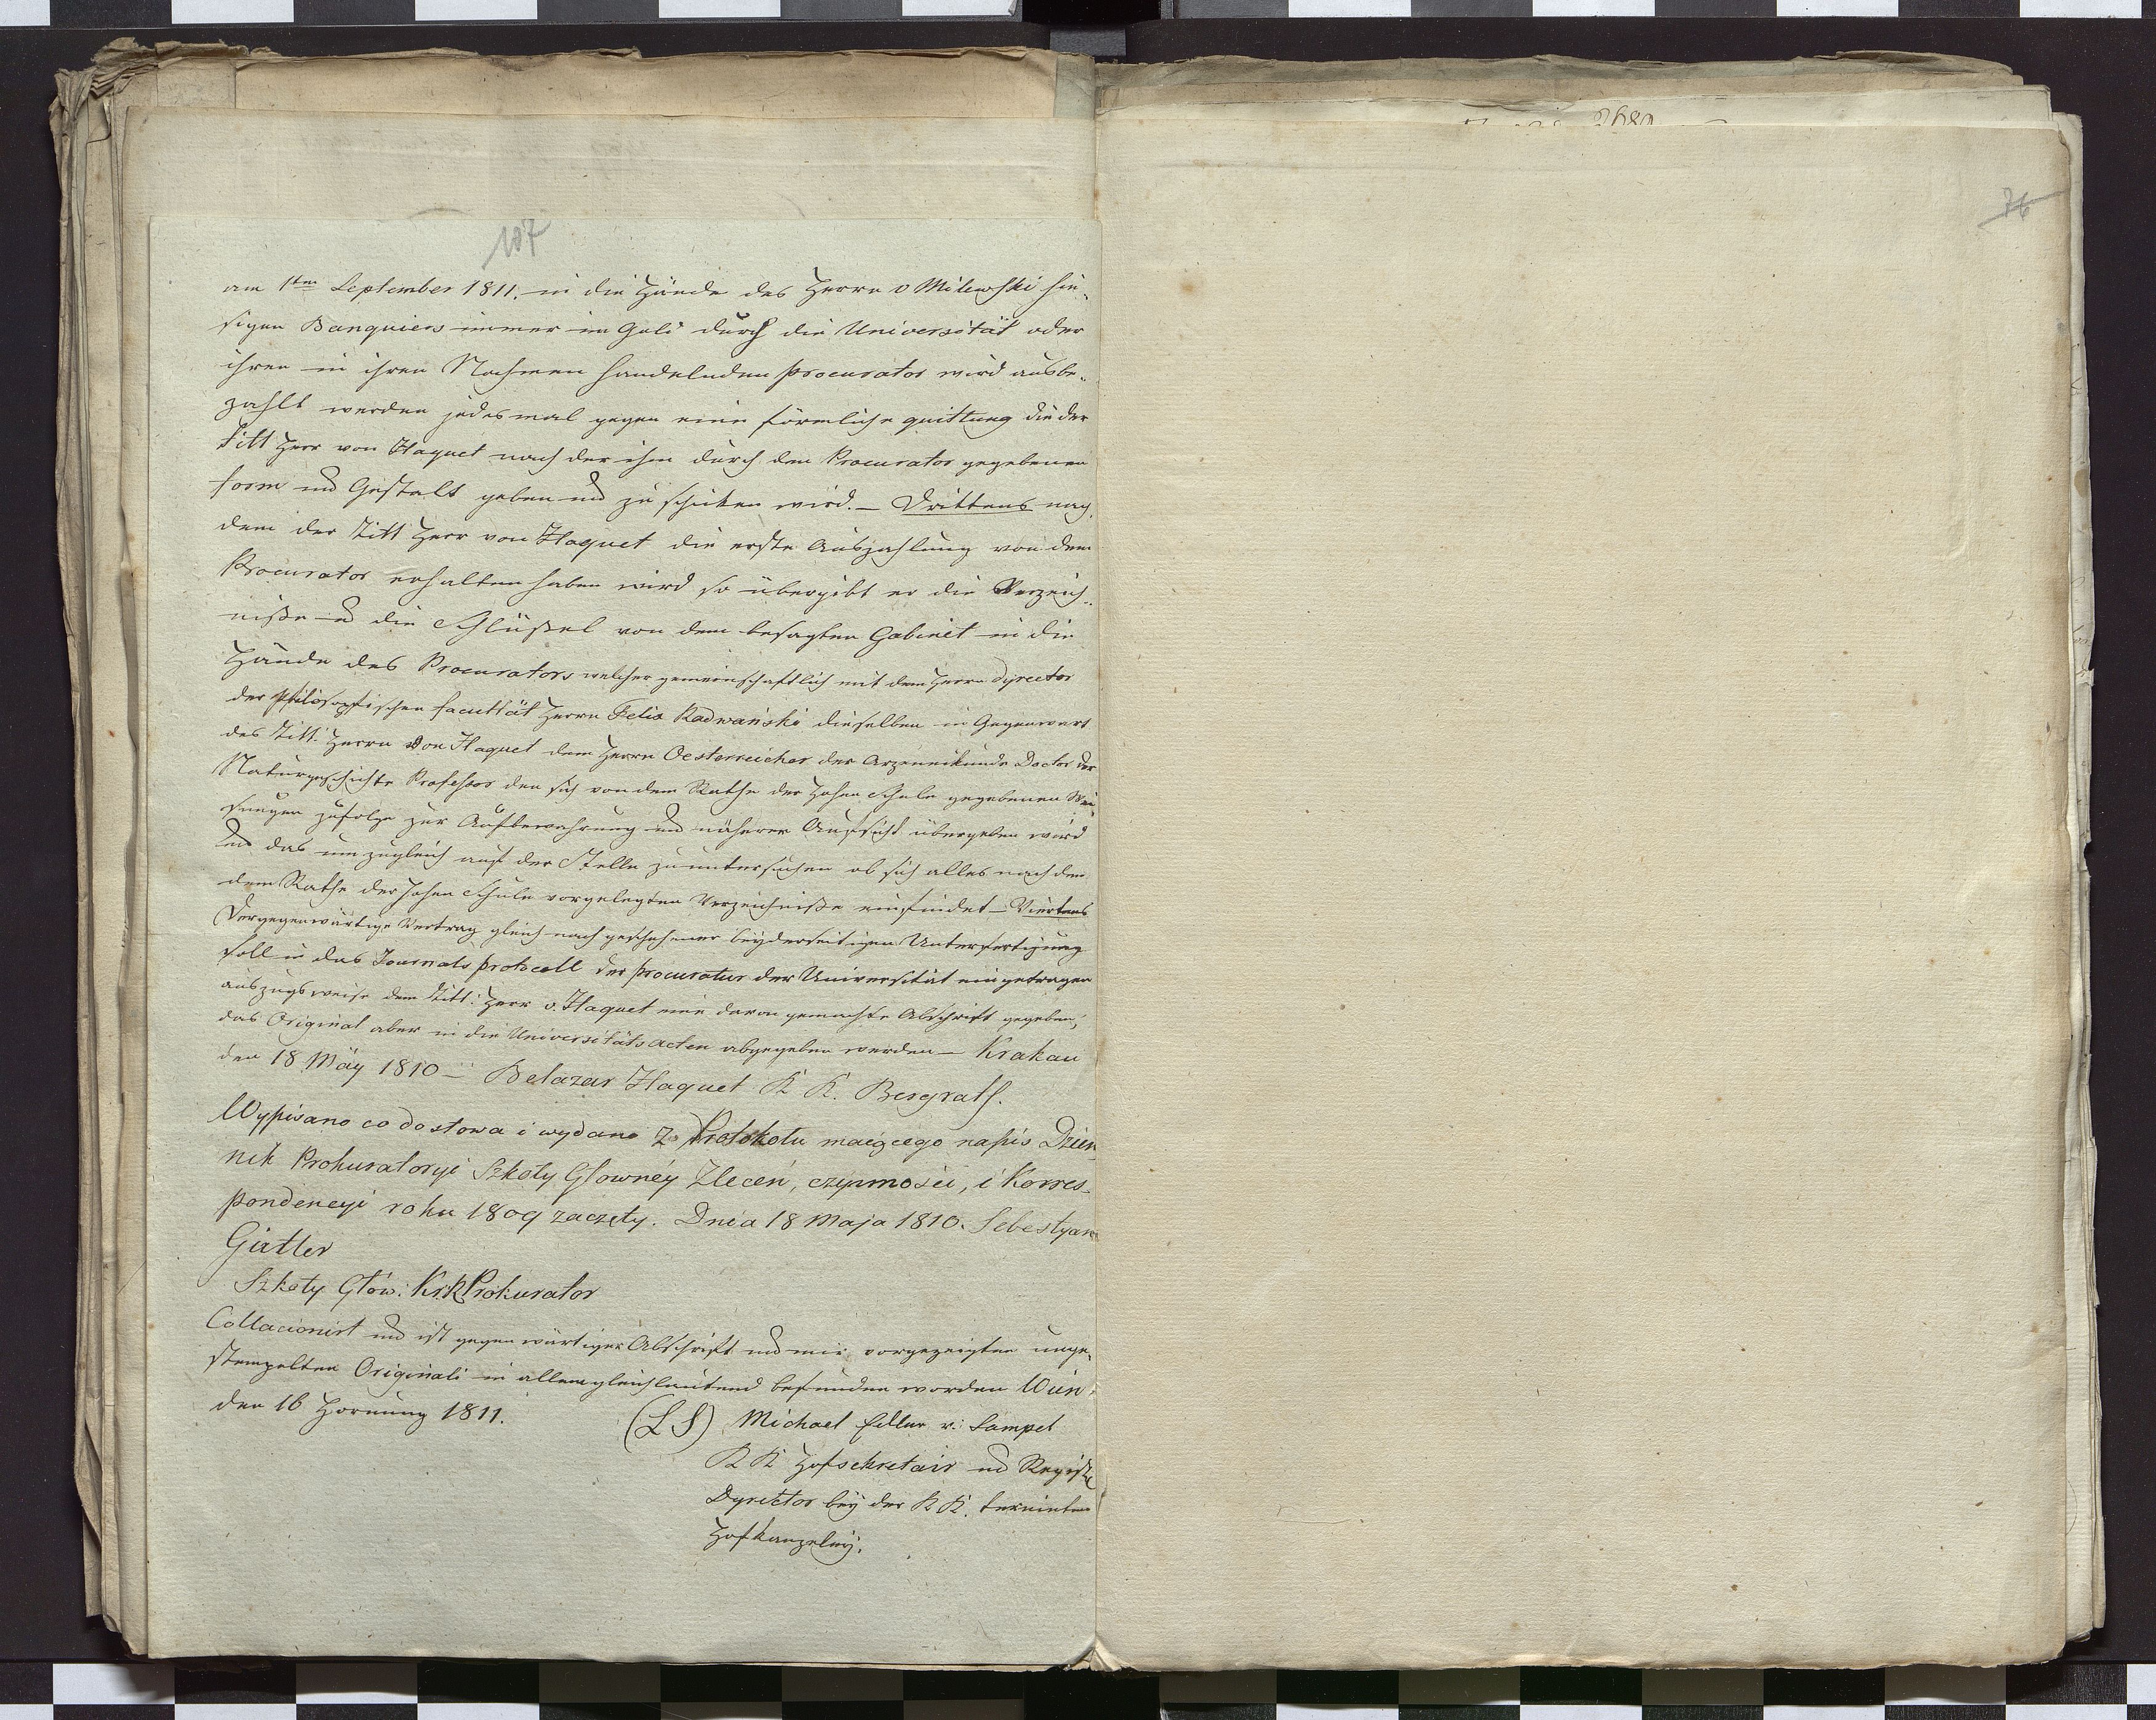 107
am 1ten September 1811. in die Hände des Herrn v Milewski hie-
sigen Banquiers immer im Gold durch die Universität oder
ihren in ihren Nahmen handelnden procurator wird ausbe-
zahlt werden jedes mal gegen eine förmliche quittung die der
Titl Herr von Haquet nach der ihm durch den Procurator gegebenen
form und Gestalt geben und zu schicken wird. – Drittens nach
dem der Titl Herr von Haquet die erste Auszahlung von dem
Procurator erhalten haben wird so übergibt er die Verzeich-
niße u die Schlüßel von dem besagten Gabinet in die
Hände des Procurators welcher gemeinschaftlich mit dem Herrn Dyrector
der philosophischen facultät Herrn Felix Radwański dieselben in Gegenwart
des Titl. Herrn von Haquet dem Herrn Oesterreicher der Arzeneikunde Doctor der
Naturgeschichte Professor den sich von dem Rathe der hohen Schule gegebenen Wei-
sungen zufolge zur Aufbewahrung und näherer Aufsicht übergeben wird
und das um zugleich auf der Stelle zu untersuchen ob sich alles nach dem
dem Rathe der hohen Schule vorgelegten Verzeichniße einfindet – Viertens
Der gegenwärtige Vertrag gleich nach geschehener beyderseitigen Unterfertigung
soll in das Journals protocoll der procuratur der Universität eingetragen
auszugsweise dem Titl: Herr v. Haquet eine davon gemachte Abschrift gegeben,
das Original aber in die Universitäts acten abgegeben werden – Krakau
den 18 Mäy 1810 – Belazar Haquet K K. Bergrath.
Wypisano co do słowa i wydano z Protokołu maiącego napis Dzien
nik Prokuratoryi Szkoły Głowney Zleceń, czynności, i Korres-
pondencyi roku 1809 zaczęty. Dnia 18 Maja 1810. Sebestyan
Girtler
Szkoły Głów: Kr.k Prokurator
Collacionirt und ist gegenwärtiger Abschrift und mir vorgezeigten unge-
stempelten Originali in allem gleichlautend befunden worden Wien
den 16 Hornung 1811.
(L S) Michael Edler v: Sampel
K K Hofsekretair und Regist
Dyrektor bey der K K. vereinten
Hofkanzeley.
76